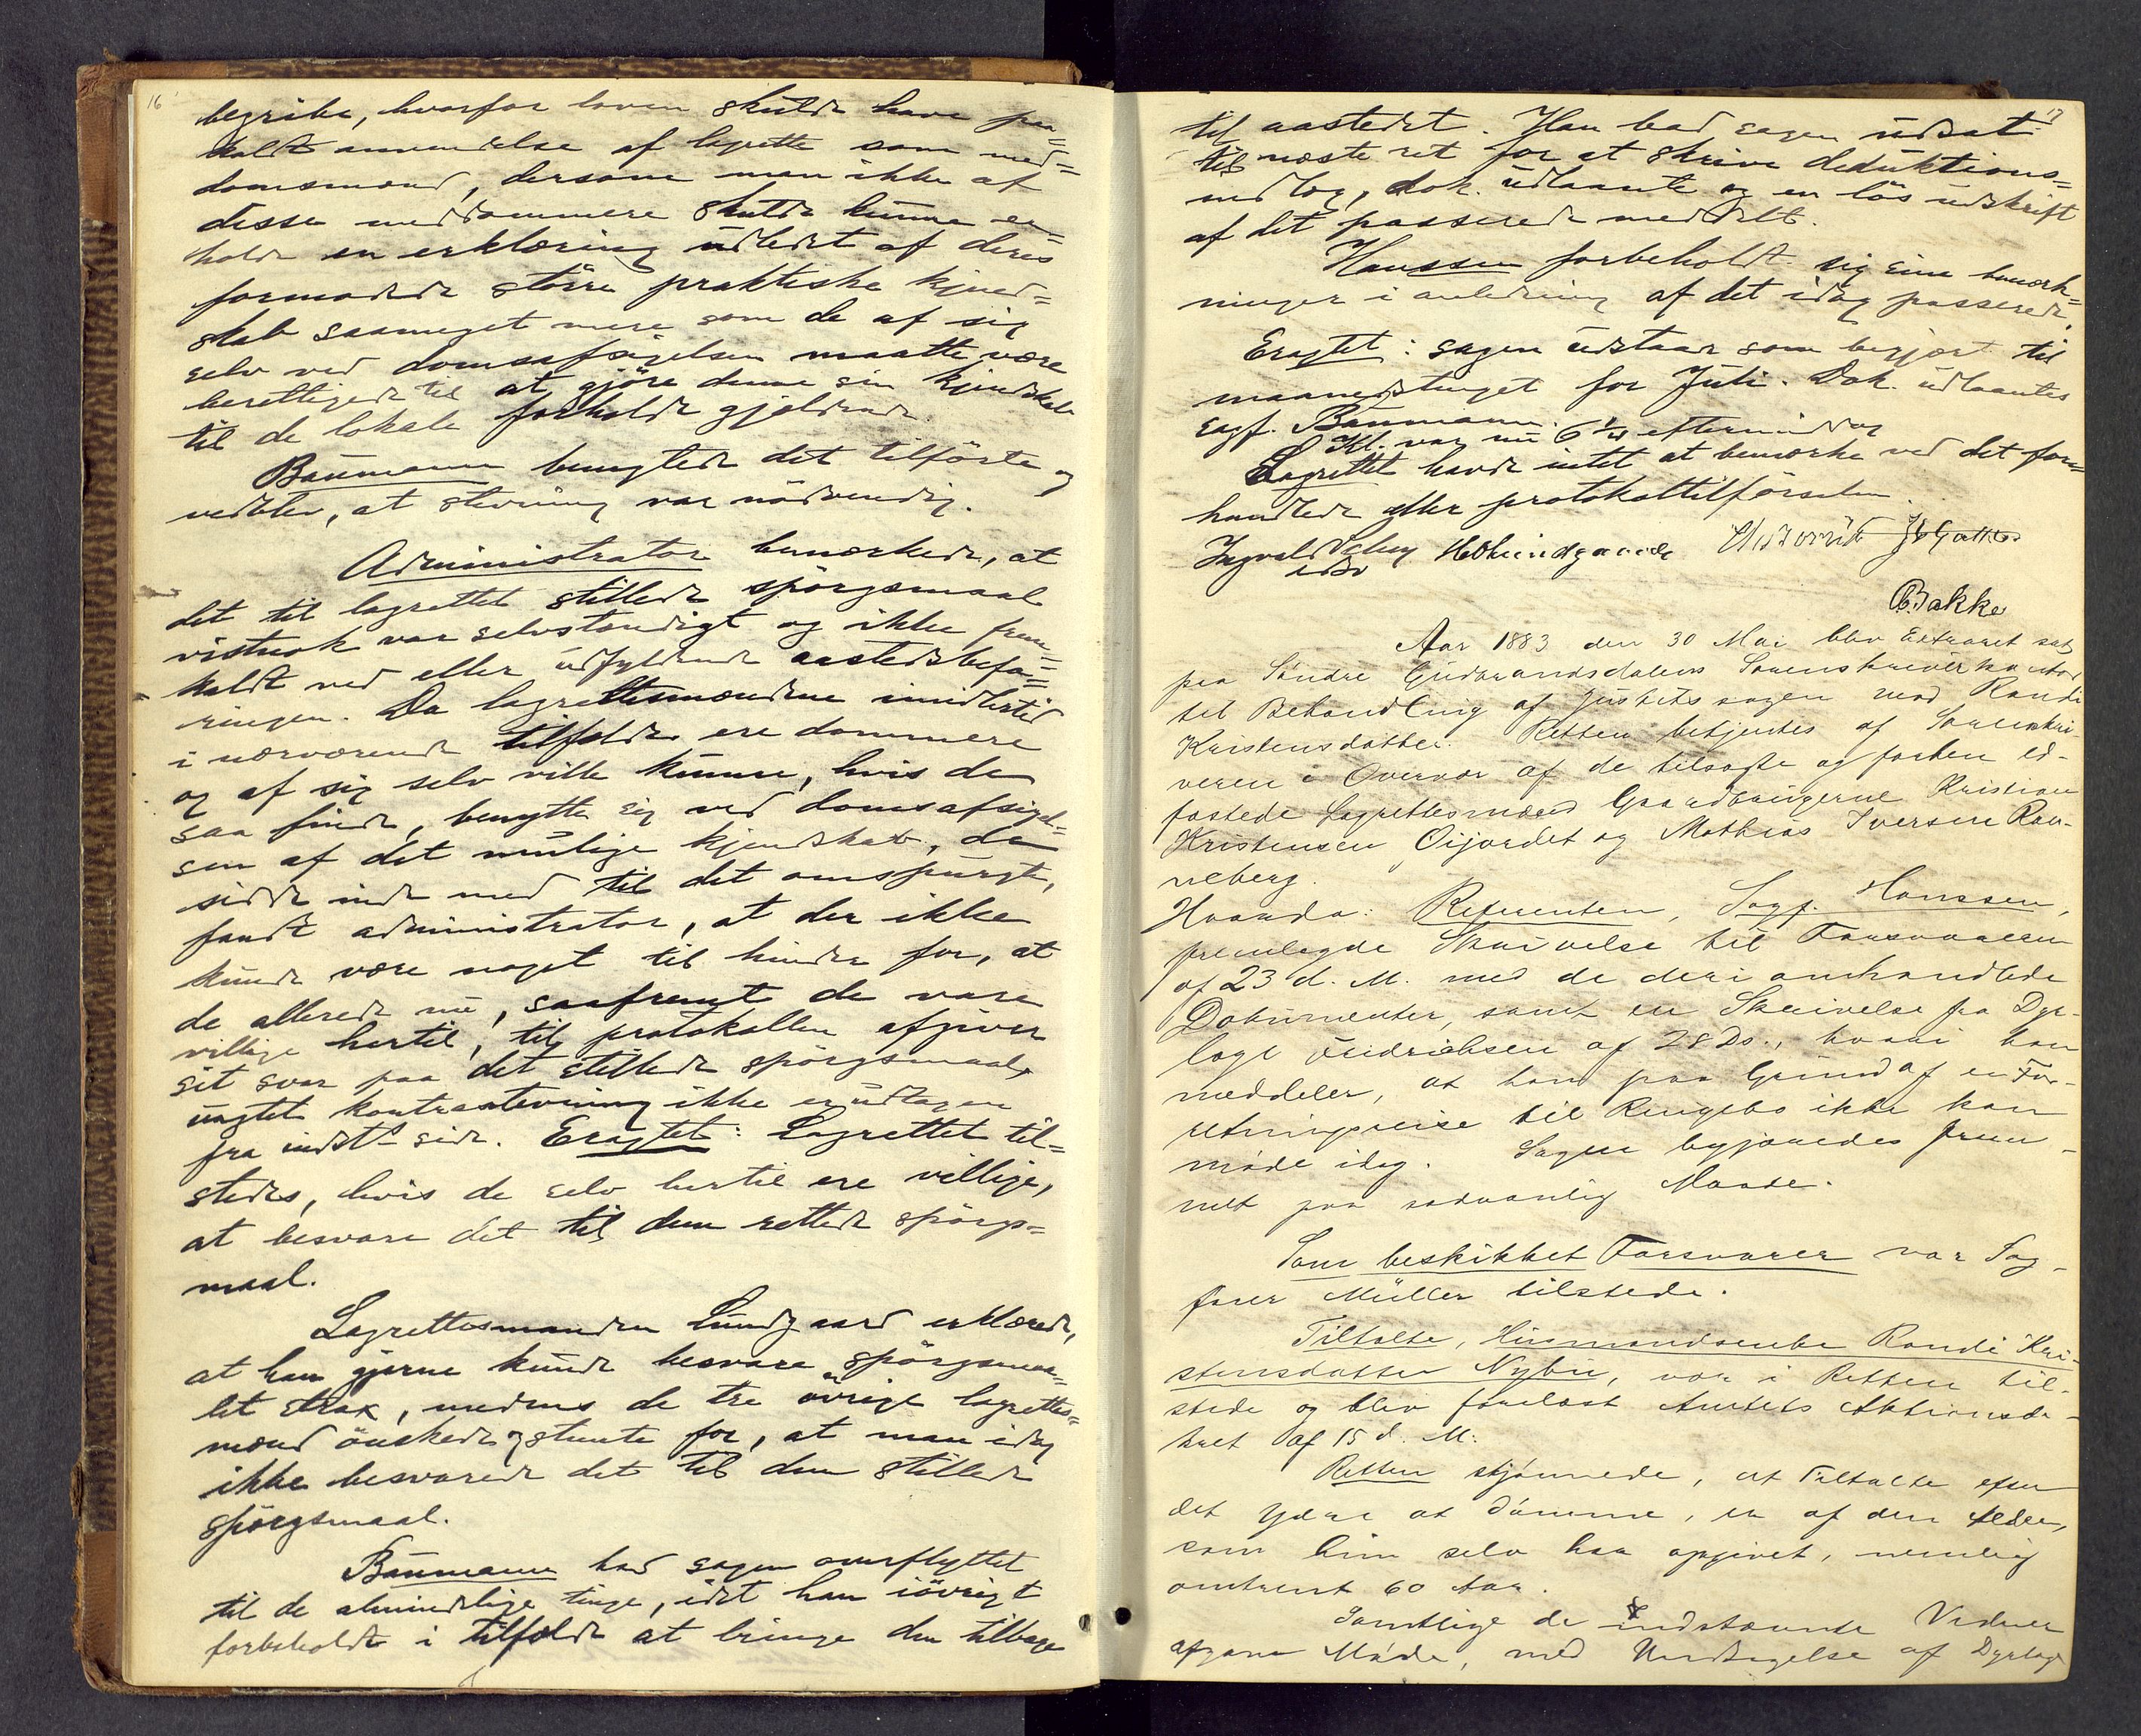 16
begribe, hvorfor loven skulde have paa=
kaldt anvendelse af lagrette som med=
domsmænd, dersom man ikke af
disse meddommere skulde kunne er=
holde en erklæring udledet af deres
formodede större praktiske kjend=
skab saameget mere som de af sig
selv ved domsafsigelsen maatte være
berettigede til at gjöre denne sin kjendskab
til de lokale forholde gjældende.
Baumann benegtede det tilförte og
vedblev, at stevning var nödvendig.
Administrator bemærkede, at
det til lagrettet stillede spörgsmaal
vistnok var selvstændigt og ikke frem=
kaldt ved eller udfyldende aastedsbefa=
ringen. Da lagrettesmændene imidlertid
i nærværende tilfælde ere dommere
og af sig selv ville kunne, hvis de
saa finde, benytte sig ved domsafsigel=
sen af det mulige kjendskab, de
sidde inde med til det omspurgte,
fandt administrator, at der ikke
kunde være noget til hinder for, at
de allerede nu, saafremt de vare
villige hertil, til protokollen afgiver
sit svar paa det stillede spörgsmaal,
uagtet kontrastevning ikke er udtagen
fra indst. side. Eragtet: Lagrettet til=
stedes, hvis de selv hertil ere villige,
at besvare det til dem rettede spörgs=
maal.
Lagrettesmanden Lundgaard erklærede,
at han gjerne kunde besvare spörgsmaa=
let strax, medens de tre övrige lagrettes=
mænd önskede og stemte for, at man idag
ikke besvarede det til dem stillede
spörgsmaal.
Baumann bad sagen overflyttet
til de almindelige tinge, idet han iövrigt
forbeholdt i tilfælde at bringe den tilbage
17
til aastedet. Han bad sagen udsat
til næste ret for at skrive deduktions=
indlæg, dok. udlaante og en lös udskrift
af det passerede meddelt.
Hanssen forbeholdt sig sine bemærk=
ninger i anledning af det idag passerede.
Eragtet: sagen udstaar som begjært til
maanedstinget for Juli. Dok. udlaantes
sagf. Baumann.
Kl. var nu 6 1/4 eftermiddag
Lagrettet havde intet at bemærke ved det for=
handlede eller protokoltilförselen.
Ingvald
Bakke
Aar 1883 den 30 Mai blev Extraret sat
paa Søndre Gudbrandsdalens Sorenskriverkontor
til Behandling af Justitssagen mod Randi
Kristensdatter. Retten betjentes af Sorenskri-
veren i Overvær af de tilsagte og forhen ed-
fæstede Lagrettesmænd Gaardbrugerne Kristian
Kristensen Øijordet og Mathias Iversen Ran-
neberg.
Hvorda: Referenten, Sagf. Hanssen,
fremlagde Skrivelse til Forsvareren
af 23 d. M. med de deri omhandlede
Dokumenter, samt en Skrivelse fra Dyr-
læge Hendrichsen af 28 Ds., hvori han
meddeler, at han paa Grund af en For-
retningsreise til Ringebo ikke kan
møde idag. Sagen begjæredes frem-
met paa sedvanlig Maade.
Som beskikket Forsvarer var Sag-
fører Müller tilstede.
Tiltalte, Husmandsenke Randi Kri-
stensdatter Nybu, var i Retten til-
stede og blev forelæst Amtets Aktionsde-
kret af 15 d. M.
Retten skjønnede, at Tiltalte efter
det Ydre at dømme, er af den Alder,
som hun selv har opgivet, nemlig
omtrent 60 Aar.
Samtlige de indstævnte Vidner
afgave Møde, med Undtagelse af Dyrlæge